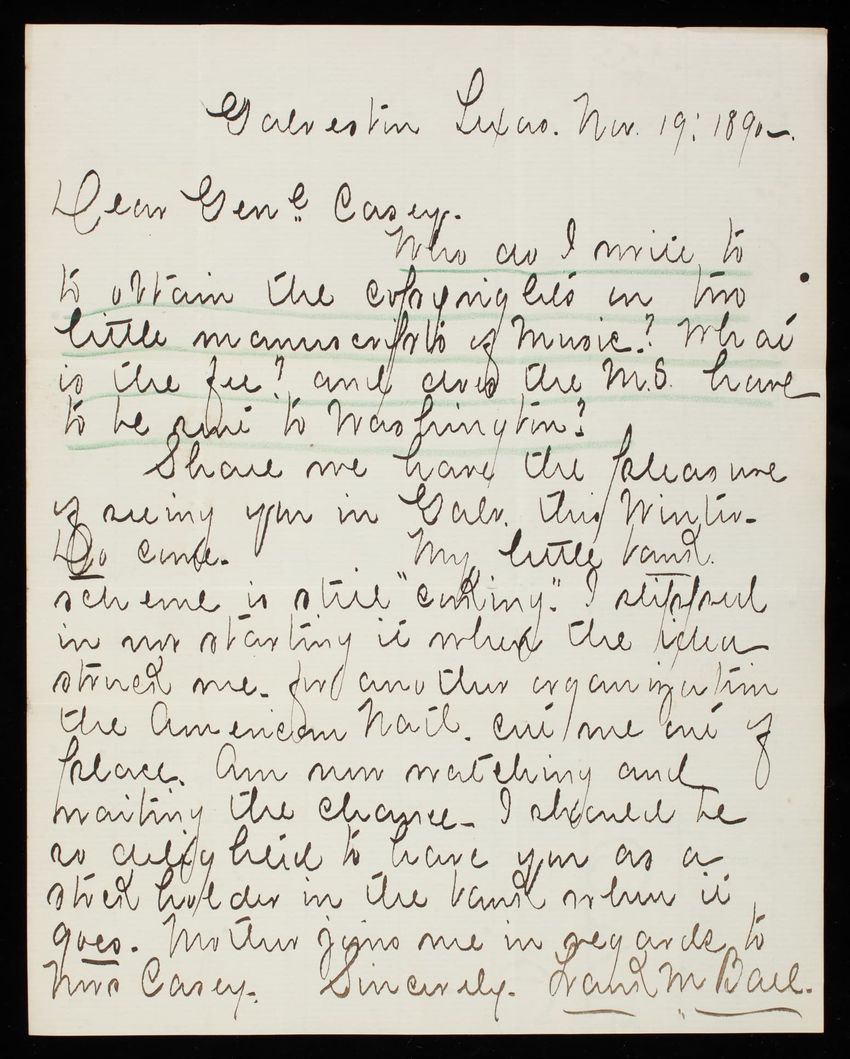 Galveston Texas. Nov. 19: 1890-.
Dear Genl. Casey.
Who do I write to
to obtain the copyrights on two
little manuscripts of Music? What
is the fee? and does the M.S. have
to be sent to Washington?
Shall we have the pleasure
of seeing you in Galv. this Winter-
Do come. My little bank
scheme is still "cooking." I slipped
in not starting it when the idea
struck me. for another organization
the American Natl. cut me out of
place. Am now watching and
waiting the chance. I should be
so delighted to have you as a
stockholder in the bank when it
goes. Mother joins me in regards to
Mrs Casey. Sincerely. Frank M Ball.